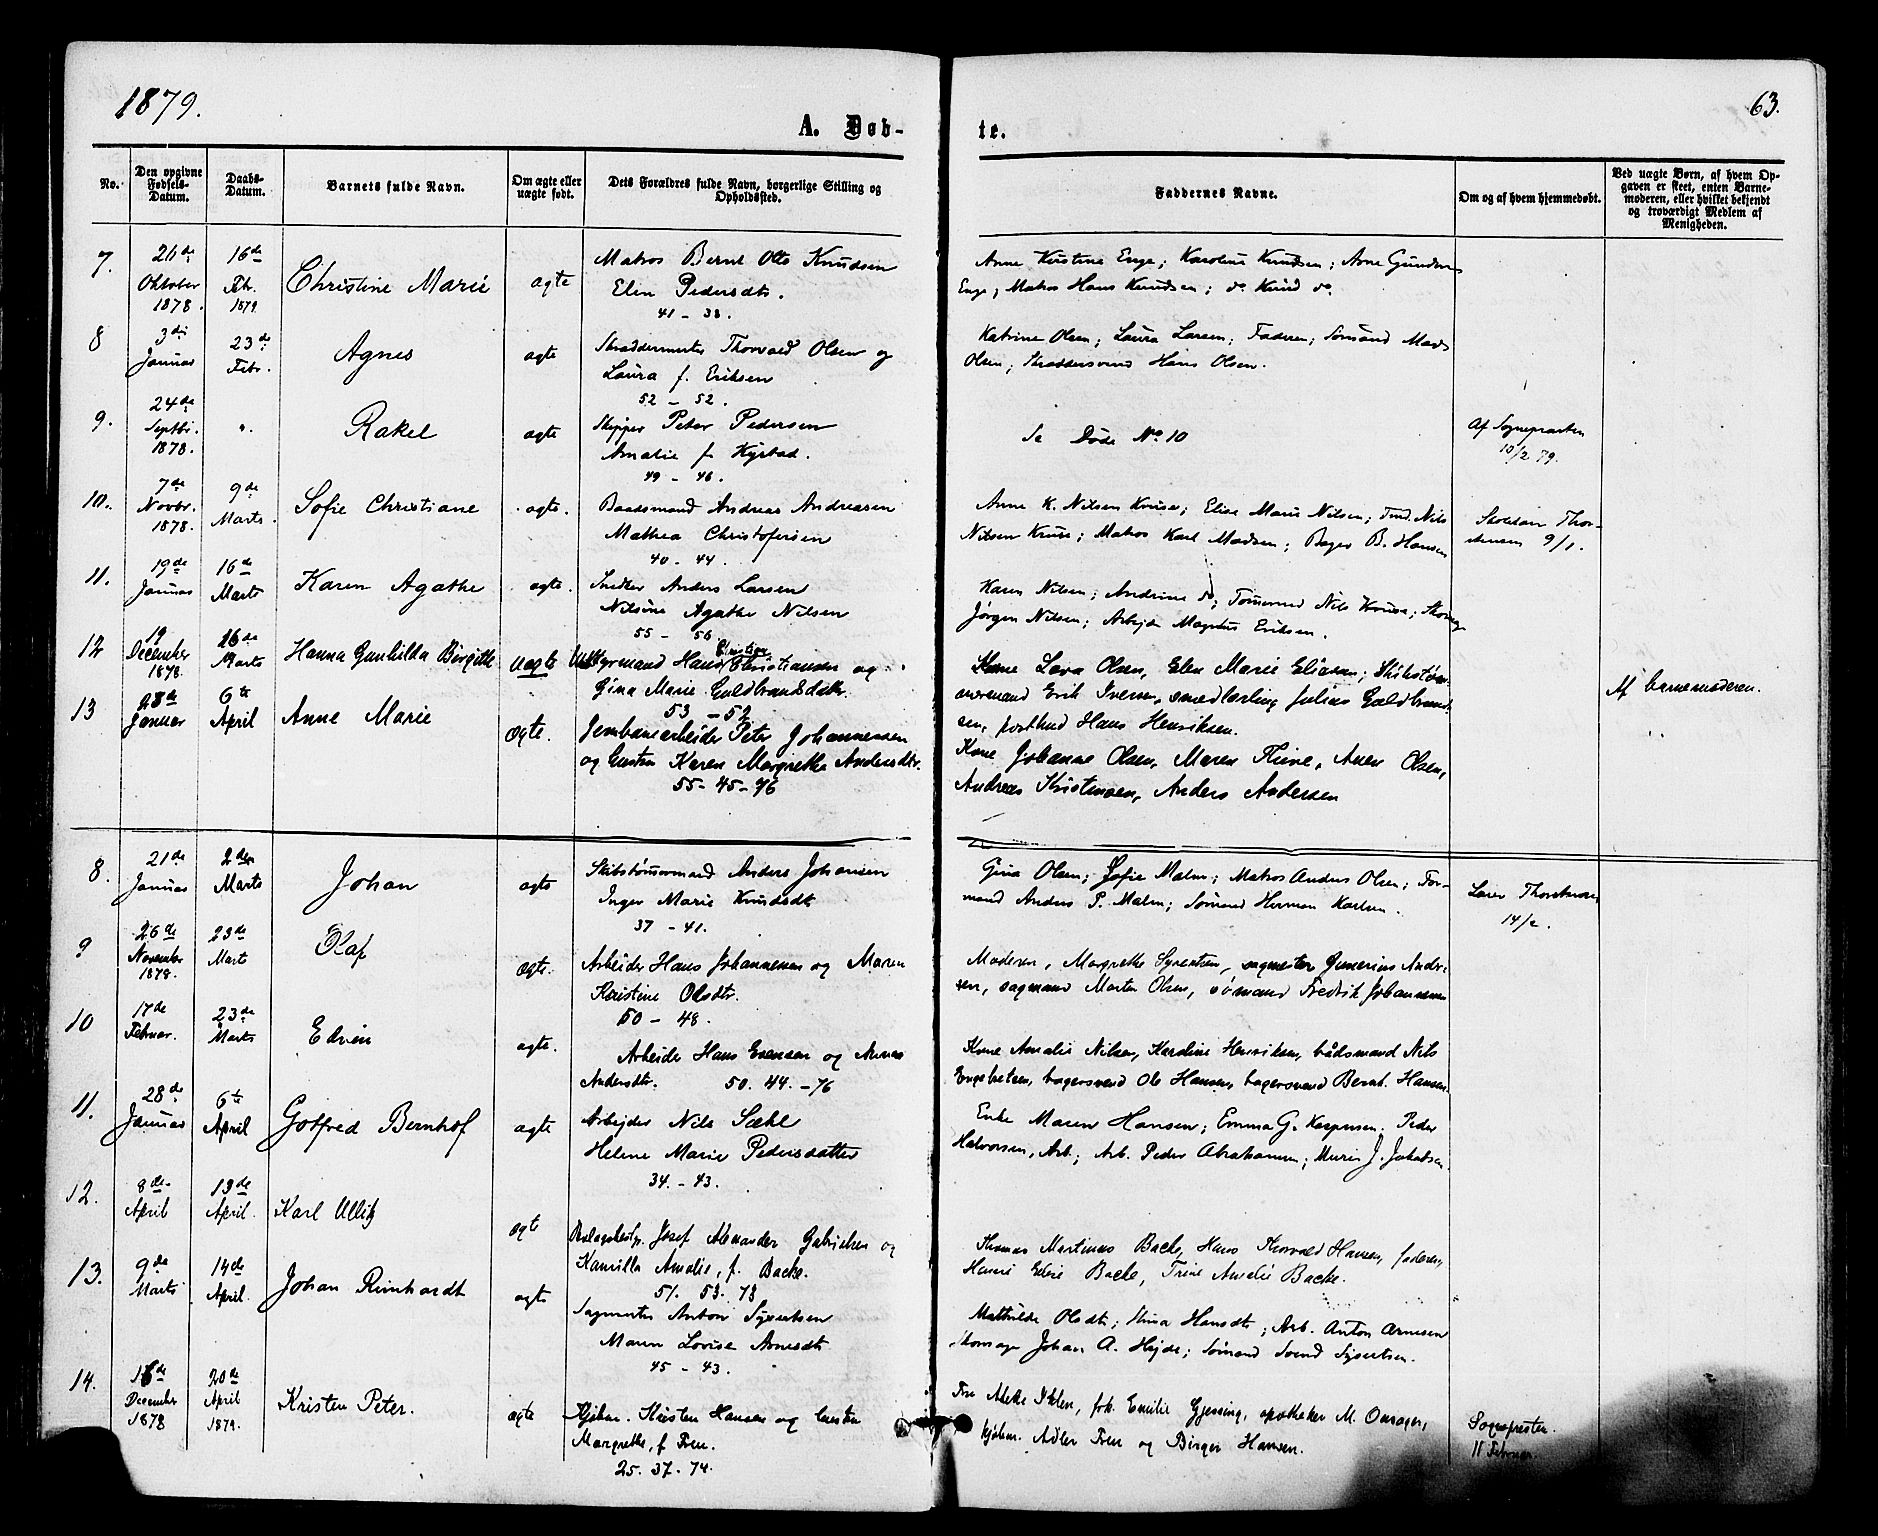 1879.
63.
A. Døb-
te.
No.
Den opgivne Fødsels-Datum.
Daabs-Datum.
Barnets fulde Navn.
Om ægte eller uægte født.
Dets Forældres fulde Navn, borgerlige Stilling og Opholdssted.
Faddernes Navne.
Om og af hvem hjemmedøbt.
Ved uægte Børn, af hvem Op-
gaven er skeet, enten Barne-
moderen, eller hvilket bekjendt
og troværdigt Medlem af
Menigheden.
7. 26de Oktober 1878. 16de Feb. 1879 Christine Marie ægte
Matros Bernt Otto Knudsen
Elen Pedersdtr.
41 - 38.
Anne Kirstine Enge; Karoline Knudsen; Arne Gunders
Enge; Matros Hans Knudsen; do Knud do.
8 3die Januar 23de Febr. Agnes ægte
Skræddermester Thorvald Olsen og
Laura f. Eriksen
52 - 52.
Katrine Olsen; Laura Larsen; Faderen; Sømand Mads
Olsen; Skræddersvend Hans Olsen.
9. 24de Septbr. 1878. " Rakel ægte
Skipper Peter Pedersen
Amalie f.
49 - 46.
Se Døde No 10
Af Sognepræsten
10/2 79.
10. 7de Novbr. 1878. 9de Marts. Sofie Christiane ægte.
Baadsmand Andreas Andreasen
Mathea Christofersen
40 - 44.
Anne K. Nilsen Kruse; Elise Marie Nilsen; Tmd. Nils
Nilsen Kruse; Matros Karl Madsen; Bager B. Hansen
Thor-
stensen 9/1.
11. 19de Januar 16de Marts Karen Agathe ægte.
Snedker Anders Larsen
Nilsine Agathe Nilsen
55 - 56
Karen Nilsen; Andrine do; Tømmermd Nils Kruse;
Jørgen Nilsen; Arbejder Magnus Eriksen.
12 19 December 1878. 16de Marts Hanna Gunhilda Birgitte uægte
Styrmand Hans Christian Christiansen og
Gina Marie Guldbrandsdatter.
53 - 52
Kone Lava Olsen, Elen Marie Eliasen; Skibstøm-
mermand Erik Iversen, smedlærling Julius Guldbrand-
sen, Hans Henriksen.
Af barnemoderen.
13 28de Januar 6te April Anne Marie ægte.
Jernbanearbeider Peter Johannessen
og hustru Karen Margrethe Andersdtr.
55 - 45 - 76
Kone Johanne Olsen, Maren Thine, Anen Olsen,
Andreas Kristensen, Anders Andersen
8. 21de Januar 2den Marts Johan ægte
Skibstømmermand Anders Johansen
Inger Marie Knudsdt
37 - 41.
Gina Olsen; Sofie Malm; Matros Anders Olsen; For-
mand Anders P. Malm; Sømand Herman Karlsen.
Lærer Thorstensen
14/2.
9 26de November 1878. 23de Marts Olaf ægte.
Arbeider Hans Johannessen og Maren
Kristine Olsdtr.
50 - 48.
Moderen, Margrethe Syvertsen, sagmester Gunerius Ander-
sen, sagmand Morten Olsen, sømand Fredrik Johannessen
10 17de Februar. 23de Marts Edvin ægte.
Arbeider Hans Evensen og Anna
Andersdtr. 50. 44. - 76
Kone Amalie Nilsen, Karoline Henriksen, bådsmand Nils
Engebretsen, bagersvend Ole Hansen, bagersvend Bernh. Hansen.
11. 28de Januar 6te April Gotfred Bernhof ægte
Arbejder Nils Sæhl
Helene Marie Pedersdatter
34. - 43.
Enke Maren Hansen; Emma G. Kaspersen. Peder
Halvorsen, Arb; Arb. Peder Abrahamsen; Murer J. Jakobsen.
12. 8de April 13de April. Karl Ullrik ægte
Josef Alexander Gabrielsen og
Kamilla Amalie, f. Backe.
51. 53. 73
Thomas Martinus Backe, Hans Thorvald Hansen, faderen,
Hanne Elise Backe, Trine Amalie Backe.
13. 9de Marts 14de April. Johan Reinhardt ægte
Sagmester Anton Syvertsen
Maren Lovise Arnesdt
45 - 43.
Mathilde Olsdt; Stina Hansdt; Arb. Anton Arnesen
Skomager Johan A. Højde; Sømand Svend Syvertsen.
14. 16de December 1878 20de April 1879. Kristen Peter. ægte
Kjøbm. Kristen Hansen og hustru
Margrethe, f. Fren.
25. 37. 74.
Fru Iklen, frk. Emilie Gjessing, apotheker M. Onsager,
kjøbm. Adler Fren og Birger Hansen.
Sognepresten.
11 Februar.